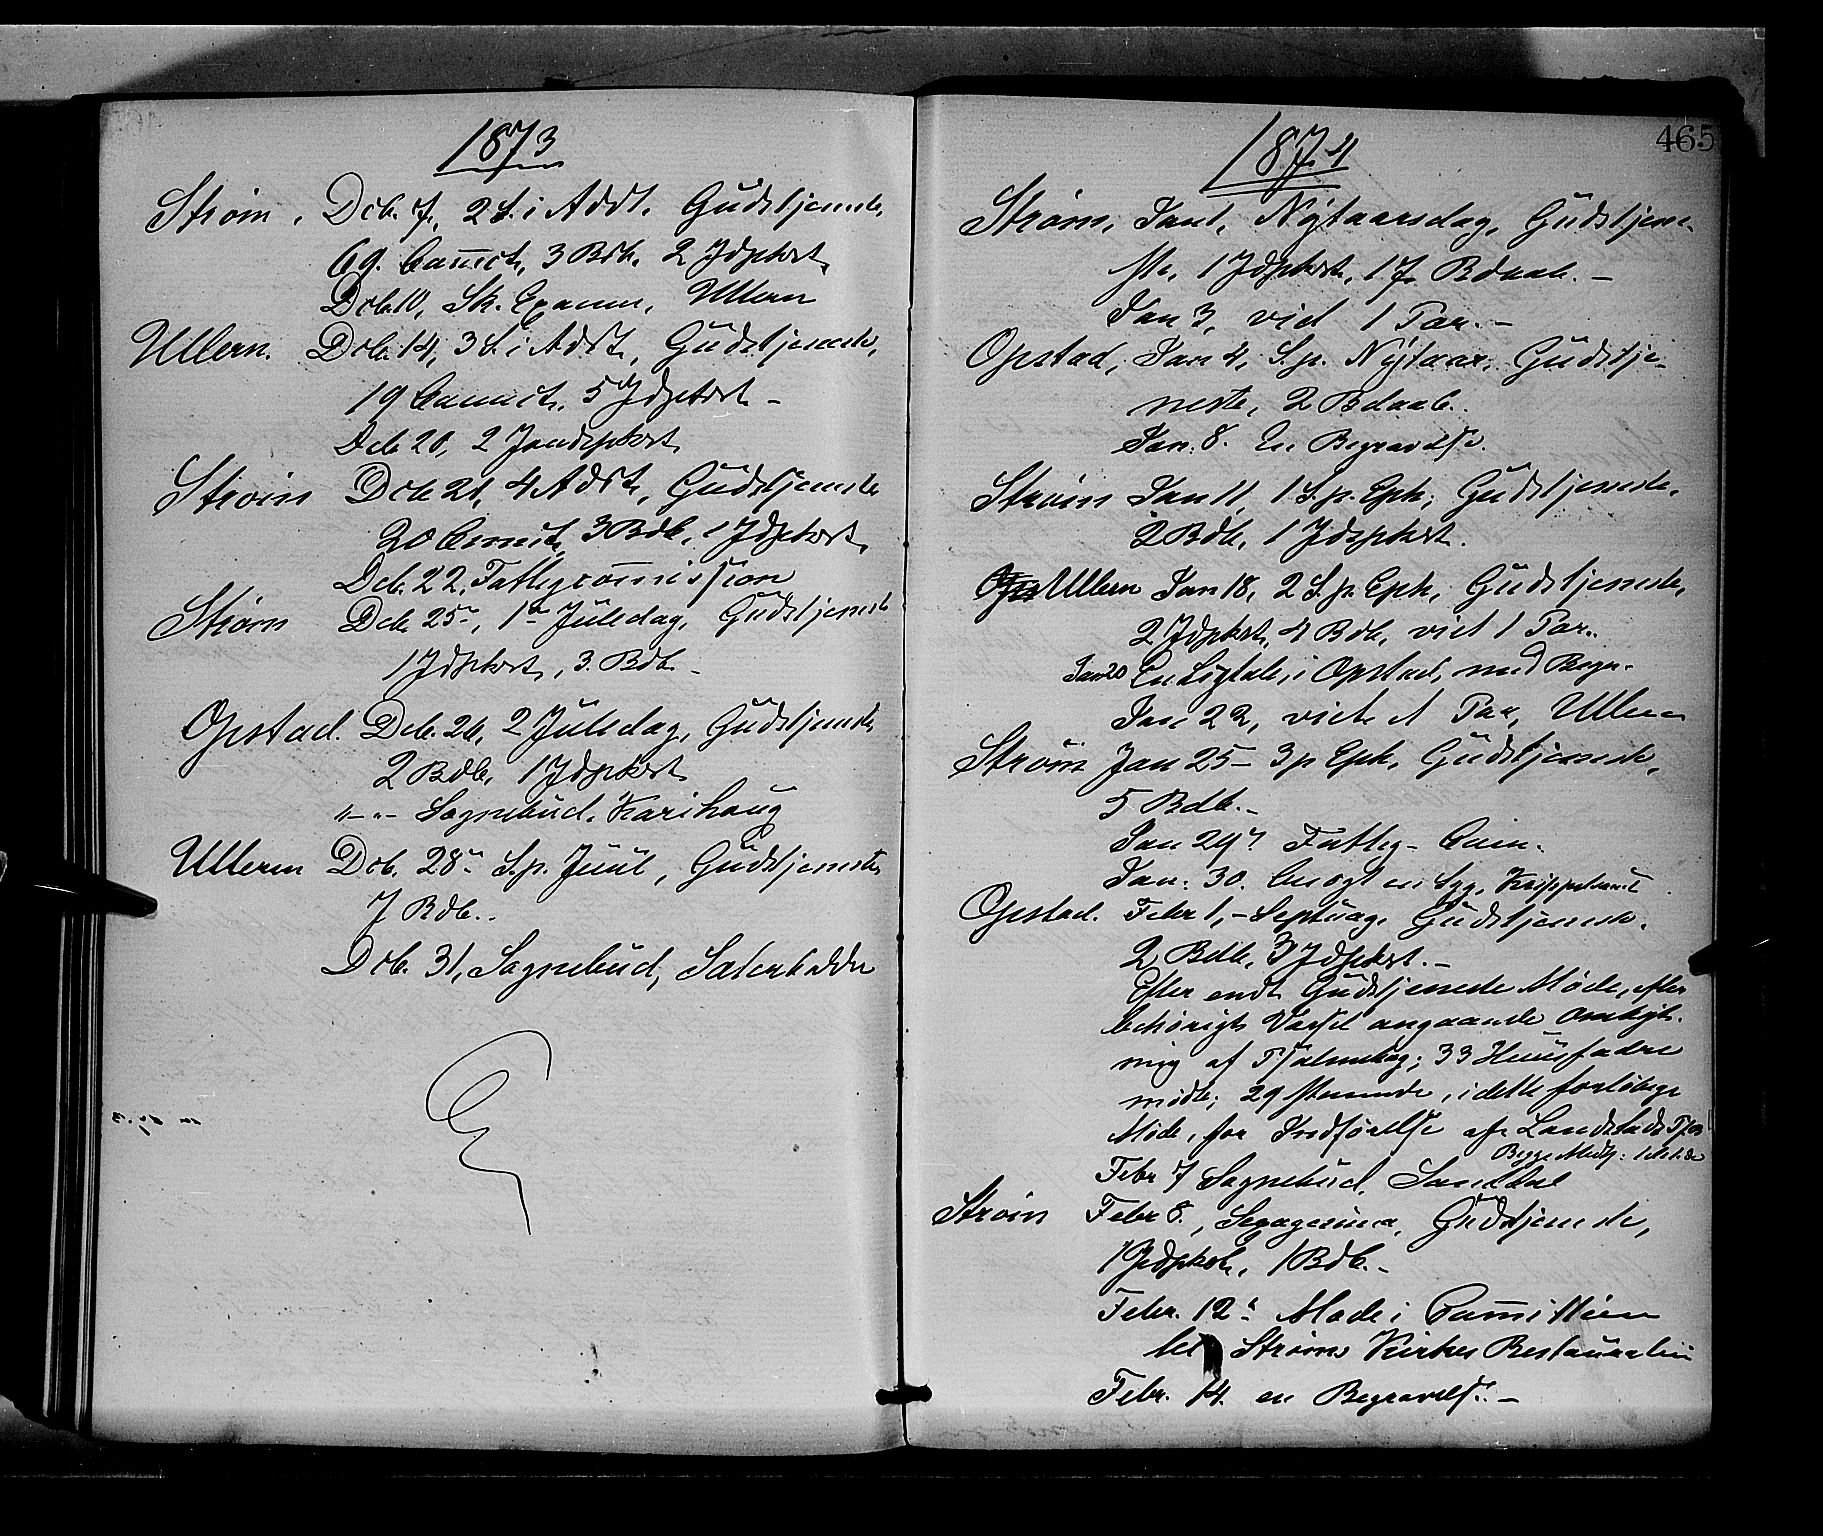 1873
Strøm. Dcb. 7, 2 S. i Advt. Gudstjeneste,
69. Comct, 3 Bdb. 2 Idpkst.
Dcb. 10, Sk. Examen, Ullern
Ullern. Dcb. 14, 3 S. i Advt, Gudstjeneste,
19 Comct, 5 Idpkst -
Dcb 20, 2 Inddpkst
Strøm Dcb 21, 4 Advt, Gudstjeneste
20 Comct, 3 Bdb, 1 Idpkst,
Dcb. 22, Fattigcomission
Strøm Dcb 25", 1ste Juledag, Gudstjeneste
1 Idpkst, 3. Bdb -
Opstad. Dcb. 26, 2 Juledag, Gudstjeneste,
2 Bdb, 1 Idpkst
"-"- Sognebud, Karihaug
Ullern Dcb. 28" S. p. Juul, Gudstjeneste,
7 Bdb..
Dcb. 31, Sognebud,
465
1874
Strøm, Jan 1, Nytaarsdag, Gudstjene-
ste, 1 Idpkst, 17 Bdaab. -
Jan 3, viet 1 Par. -
Opstad, Jan 4, S. p. Nytaar, Gudstje-
neste, 2 Bdaab.
Jan. 8. En Begravelse.
Strøm Jan 11, 1 S. p. Eph; Gudstjeneste,
2 Bdb, 1 Idpkst.
Ullern Jan 18, 2 S. p. Eph, Gudstjeneste,
2 Idpkst, 4 Bdb, viet 1 Par.
Jan 20 En Ligtale, i Opstad, med Begr.
Jan 22, viet et Par, Ullern
Strøm Jan 25 - 3 p Eph, Gudstjeneste,
5 Bdb. -
Jan 29" Fattig- Com.
Jan. 30. besøgt en Syg,
Opstad. Febr 1, - Septuag, Gudstjeneste.
2 Bdb, 3 Idpkst. -
Efter endt Gudstjeneste Møde, efter
behørigt Varsel angaaende Ombyt-
ning af Psalmebog; 33 Huusfædre
mødte; 29 stemmede, i dette foreløbige
Møde, for Indførelse af Landstads Ps
Febr 7 Sognebud,
Strøm Febr 8., Sexagesima, Gudstjeneste,
1 Idpkst, 1 Bdb. -
Febr. 12" Møde i Comitteen
Strøms Kirkes Restauration
Febr. 14. en Begravelse. -